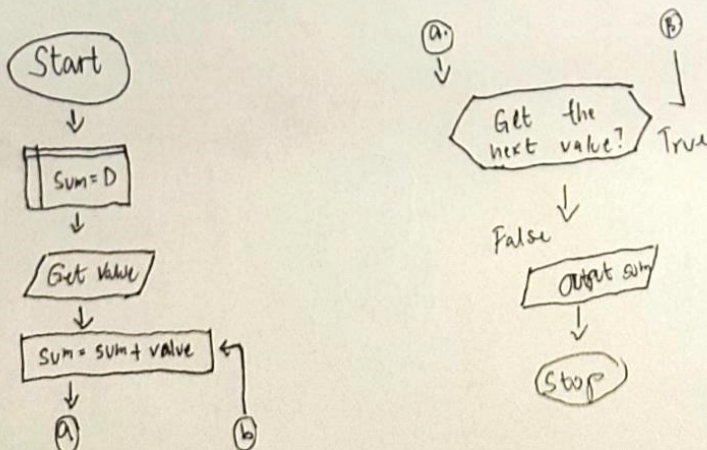 Start
sum = D
Get value
sum = sum + value
a
b
a.
B
Get the
next value?
True
False
Output sum
Stop